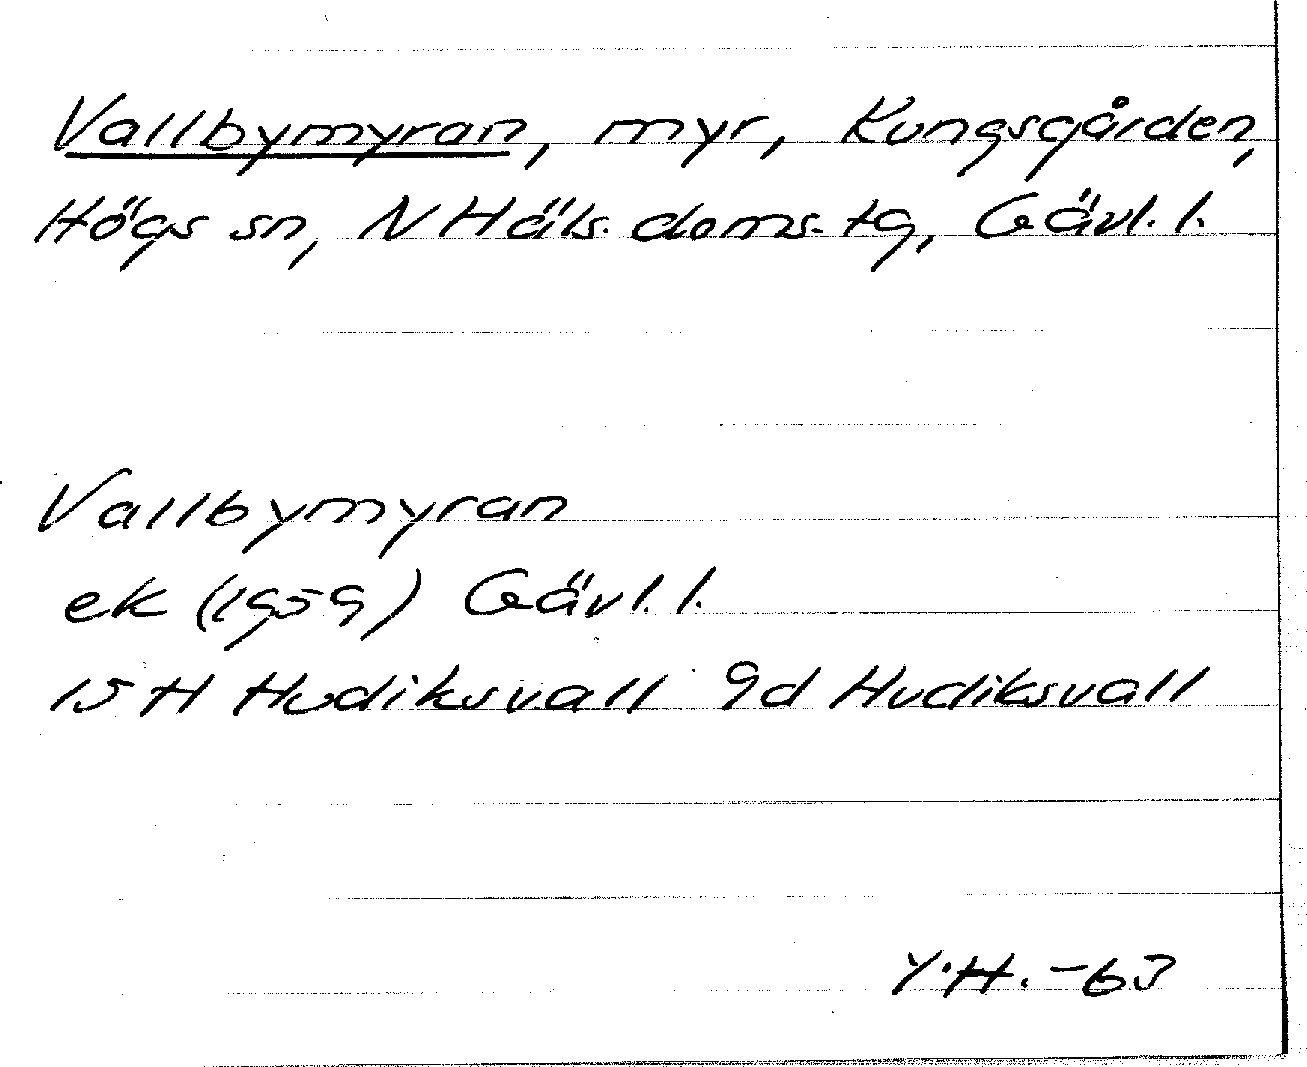 Vallbymyran, myr, Kungsgården,
Högs sn, N Häls. doms. tg, Gävl. l.
Vallbymyran
ek (1959) Gävl. l.
15 H Hudiksvall 9d Hudiksvall
Y.H. -63